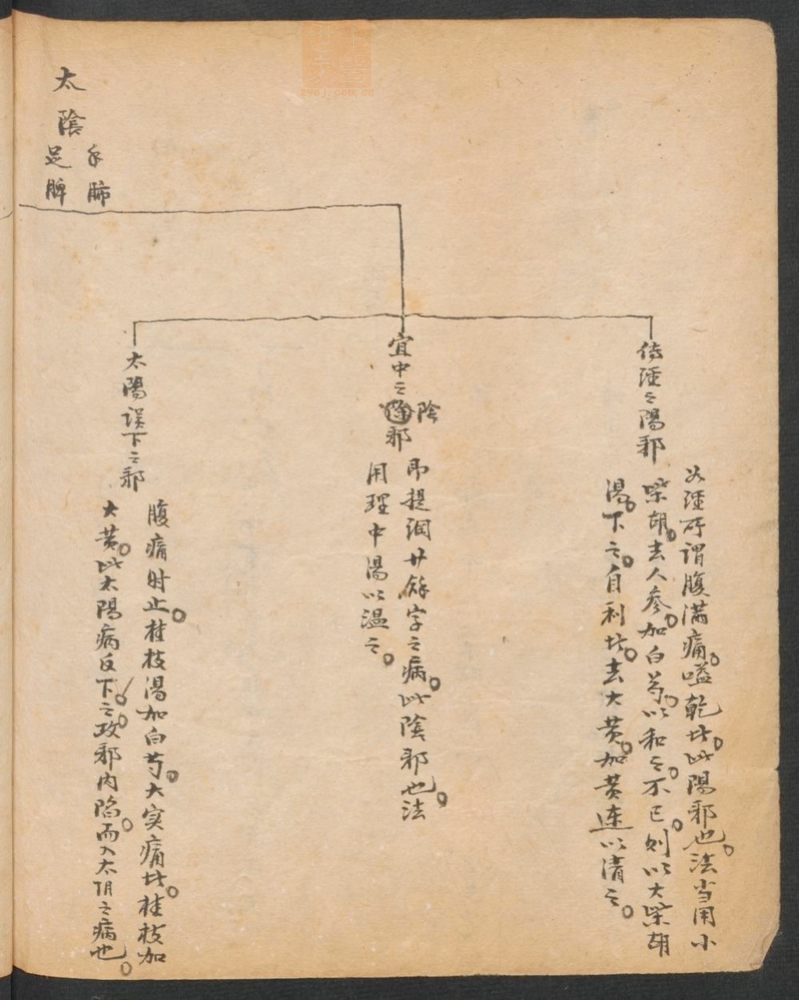 太陰
手肺
足脾
傳經之陽邪
如經所謂腹滿痛。嗌乾者。此陽邪也。法当用小
柴胡。去人參。加白芍。以和之。不已。則以大柴胡
湯。下之。自利者。去大黄。加黄連以清之。
直中之陰邪
陰
即提綱廿餘字之病。此陰邪也。法
用理中湯以温之。
太陽误下之邪
腹痛时止。桂枝湯加白芍。大实痛者。桂枝加
大黄。此太陽病反下之。故邪内陷。而入太阴之病也。